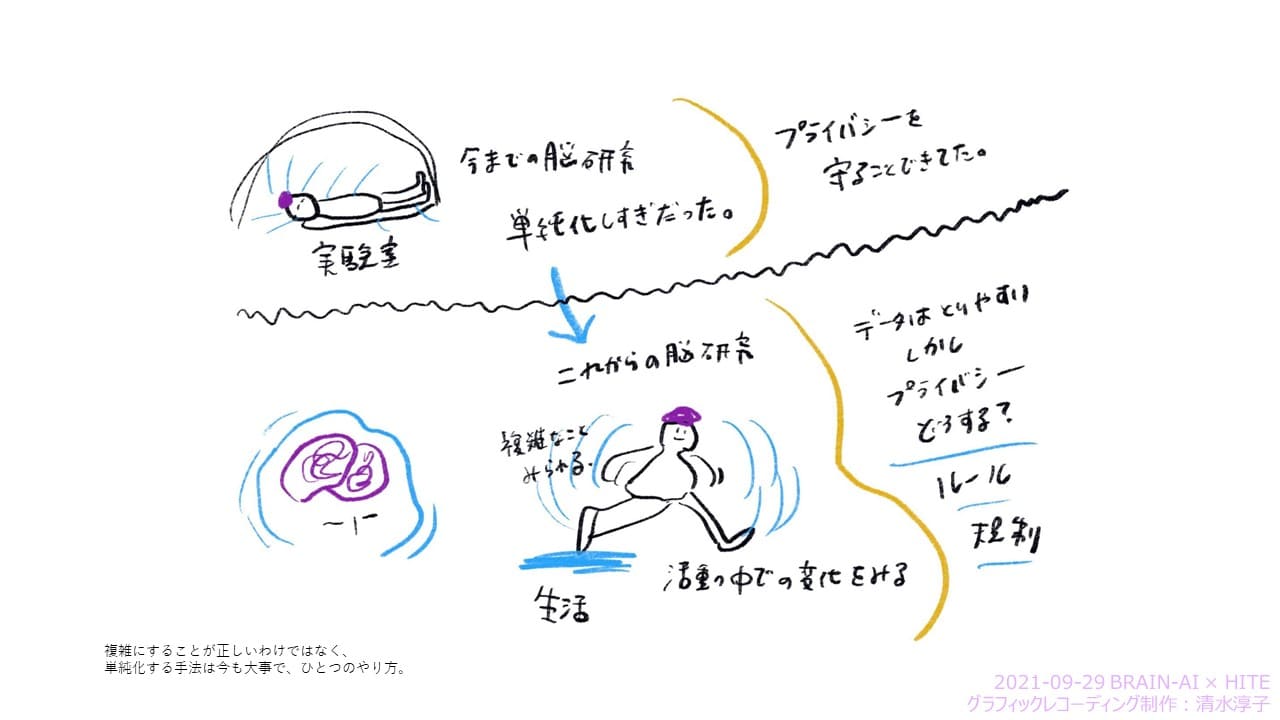 今までの脳研究
単純化しすぎだった。
実験室
プライバシーを
守ることできてた。
これからの脳研究
複雑なこと
みられる.
生活
活動の中での変化をみる
データはとりやすい
しかし
プライバシー
どうする?
ルール
規制
複雑にすることが正しいわけではなく、
単純化する手法は今も大事で、ひとつのやり方。
2021-09-29 BRAIN-AI × HITE
グラフィックレコーディング制作：清水淳子